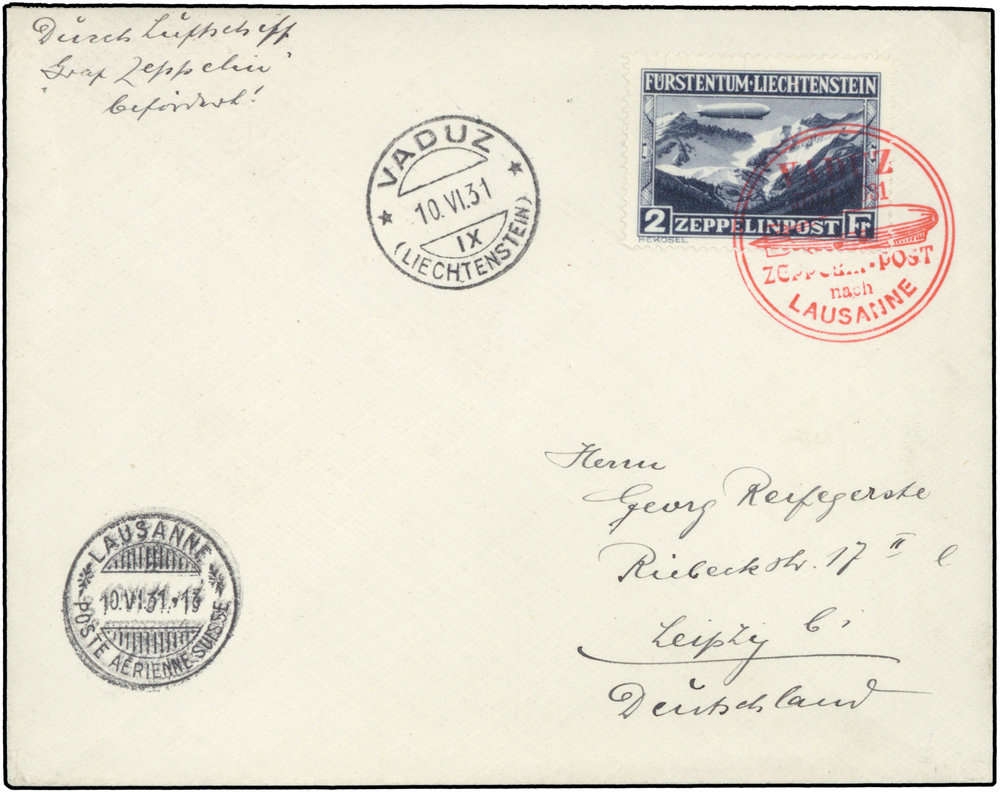 Durch Luftschiff
"Graf Zeppelin"
befördert!
VADUZ
10.VI.31
IX
(LIECHTENSTEIN)
FÜRSTENTUM·LIECHTENSTEIN
2 ZEPPELINPOST Fr
VADUZ
31
ZEPPELIN·POST
nach
LAUSANNE
Herrn
Georg Reifegerste
Riebeckstr. 17 II l
Leipzig C1
Deutschland
LAUSANNE
10.VI.31.-13
POSTE AÉRIENNE SUISSE